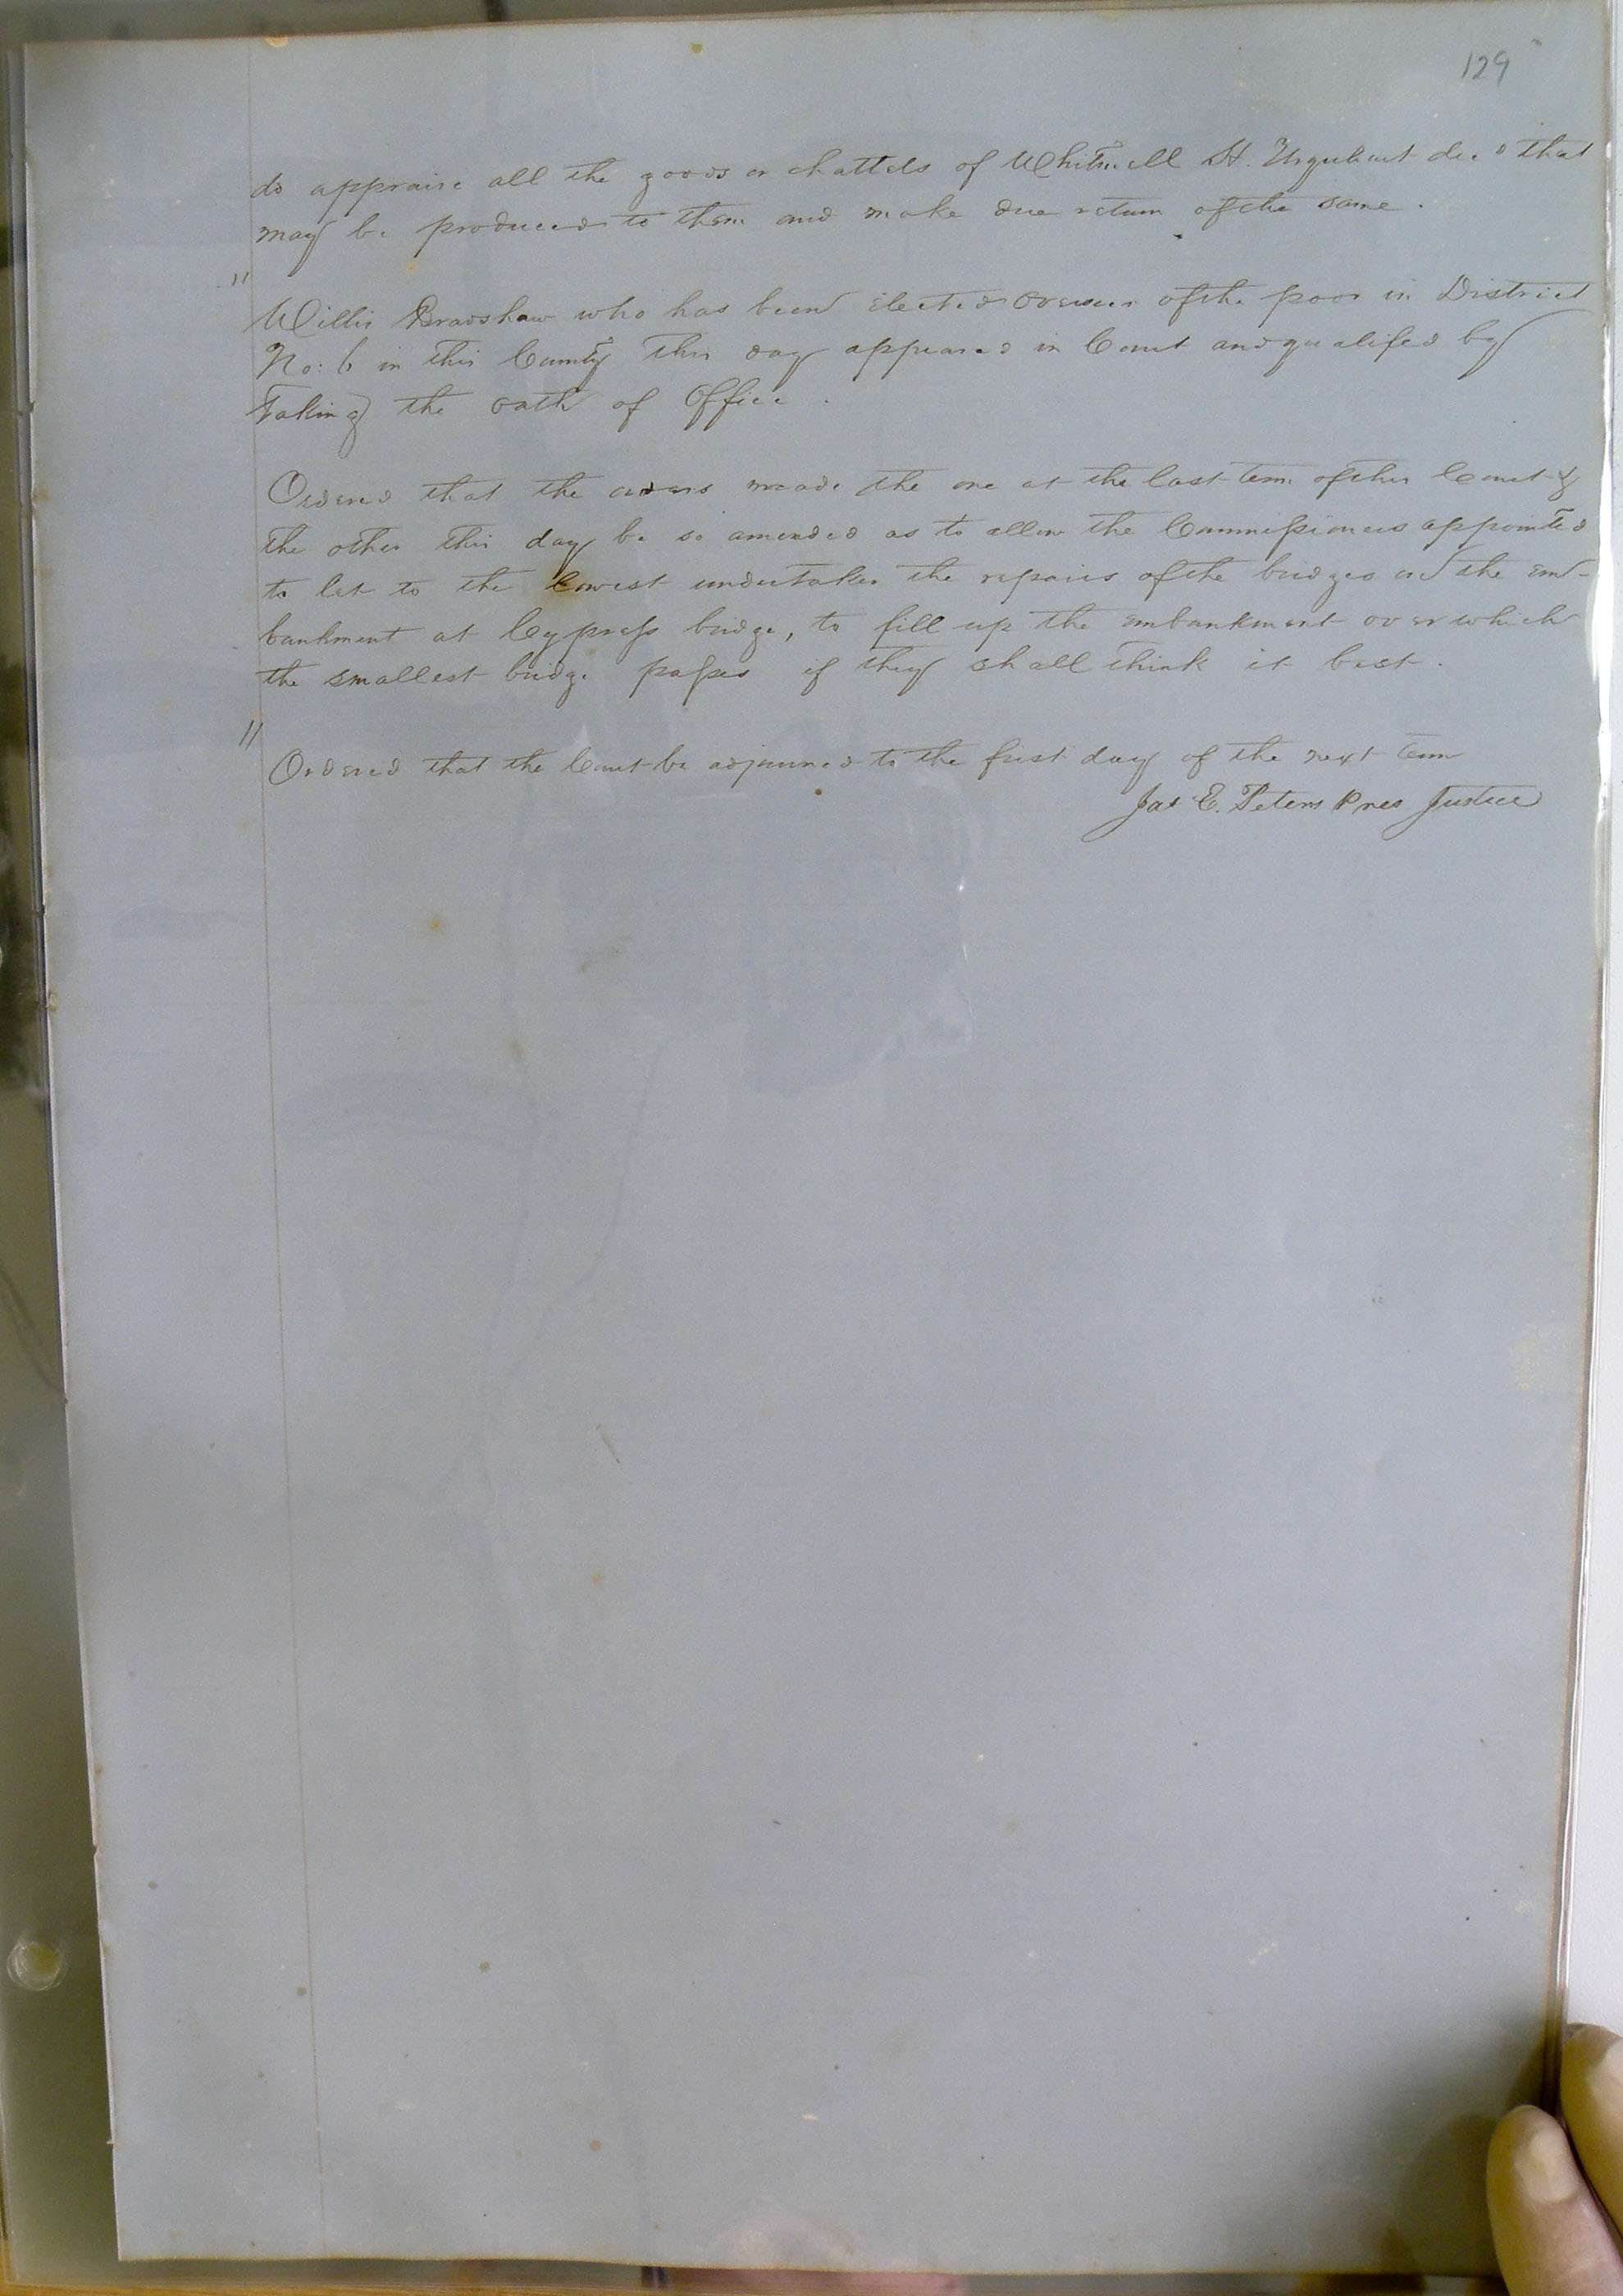 129
do appraise all the goods or chattels of Whitmell H. Urquhart decd that
may be produced to them and make due return of the same.
"
Willis Bradshaw who has been elected overseer of the poor in District
No: 6 in this County this day appeared in Court and qualified by
taking the oath of Office.
Ordered that the orders made the one at the last term of this Court &
the other this day be so amended as to allow the Commissioners appointed
to let to the lowest undertaker the repairs of the bridges and the em-
bankment at Cypress bridge, to fill up the embankment over which
the smallest bridge passes if they shall think it best.
"
Ordered that the Court be adjourned to the first day of the next term
Jas E. Peters Pres Justice